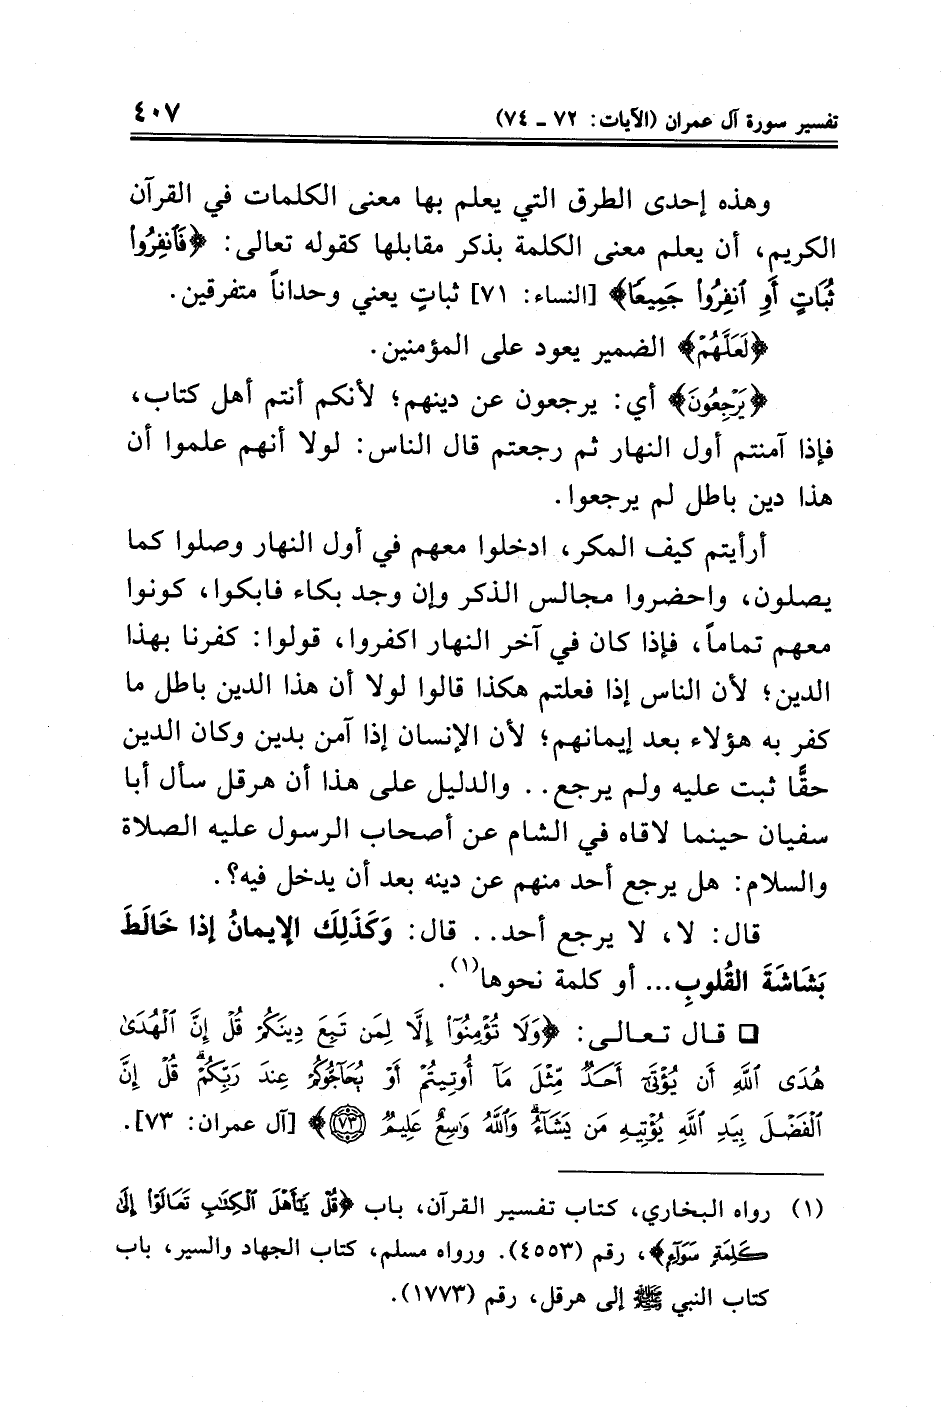 تفسير سورة آل عمران (الآيات: ٧٢ ـ ٧٤) ٤٠٧
وهذه إحدى الطرق التي يعلم بها معنى الكلمات في القرآن
الكريم، أن يعلم معنى الكلمة بذكر مقابلها كقوله تعالى: ﴿فَٱنفِرُوا۟
ثُبَاتٍ أَوِ ٱنفِرُوا۟ جَمِيعًا﴾ [النساء: ٧١] ثباتٍ يعني وحداناً متفرقين.
﴿لَعَلَّهُمْ﴾ الضمير يعود على المؤمنين.
﴿يَرْجِعُونَ﴾ أي: يرجعون عن دينهم؛ لأنكم أنتم أهل كتاب،
فإذا آمنتم أول النهار ثم رجعتم قال الناس: لولا أنهم علموا أن
هذا دين باطل لم يرجعوا.
أرأيتم كيف المكر، ادخلوا معهم في أول النهار وصلوا كما
يصلون، واحضروا مجالس الذكر وإن وجد بكاء فابكوا، كونوا
معهم تماماً، فإذا كان في آخر النهار اكفروا، قولوا: كفرنا بهذا
الدين؛ لأن الناس إذا فعلتم هكذا قالوا لولا أن هذا الدين باطل ما
كفر به هؤلاء بعد إيمانهم؛ لأن الإنسان إذا آمن بدين وكان الدين
حقًّا ثبت عليه ولم يرجع.. والدليل على هذا أن هرقل سأل أبا
سفيان حينما لاقاه في الشام عن أصحاب الرسول عليه الصلاة
والسلام: هل يرجع أحد منهم عن دينه بعد أن يدخل فيه؟.
قال: لا، لا يرجع أحد.. قال: وَكَذَلِكَ الإيمانُ إذا خَالَطَ
بَشَاشَةَ القُلوبِ... أو كلمة نحوها(١).
❑ قال تعالى: ﴿وَلَا تُؤْمِنُوٓا۟ إِلَّا لِمَن تَبِعَ دِينَكُمْ قُلْ إِنَّ ٱلْهُدَىٰ
هُدَى ٱللَّهِ أَن يُؤْتَىٰٓ أَحَدٌ مِّثْلَ مَآ أُوتِيتُمْ أَوْ يُحَآجُّوكُمْ عِندَ رَبِّكُمْ ۗ قُلْ إِنَّ
ٱلْفَضْلَ بِيَدِ ٱللَّهِ يُؤْتِيهِ مَن يَشَآءُ ۗ وَٱللَّهُ وَٰسِعٌ عَلِيمٌ ٧٣﴾ [آل عمران: ٧٣].
(١) رواه البخاري، كتاب تفسير القرآن، باب ﴿قُلْ يَٰٓأَهْلَ ٱلْكِتَٰبِ تَعَالَوْا۟ إِلَىٰ
كَلِمَةٍ سَوَآءٍ﴾، رقم (٤٥٥٣). ورواه مسلم، كتاب الجهاد والسير، باب
كتاب النبي ﷺ إلى هرقل، رقم (١٧٧٣).